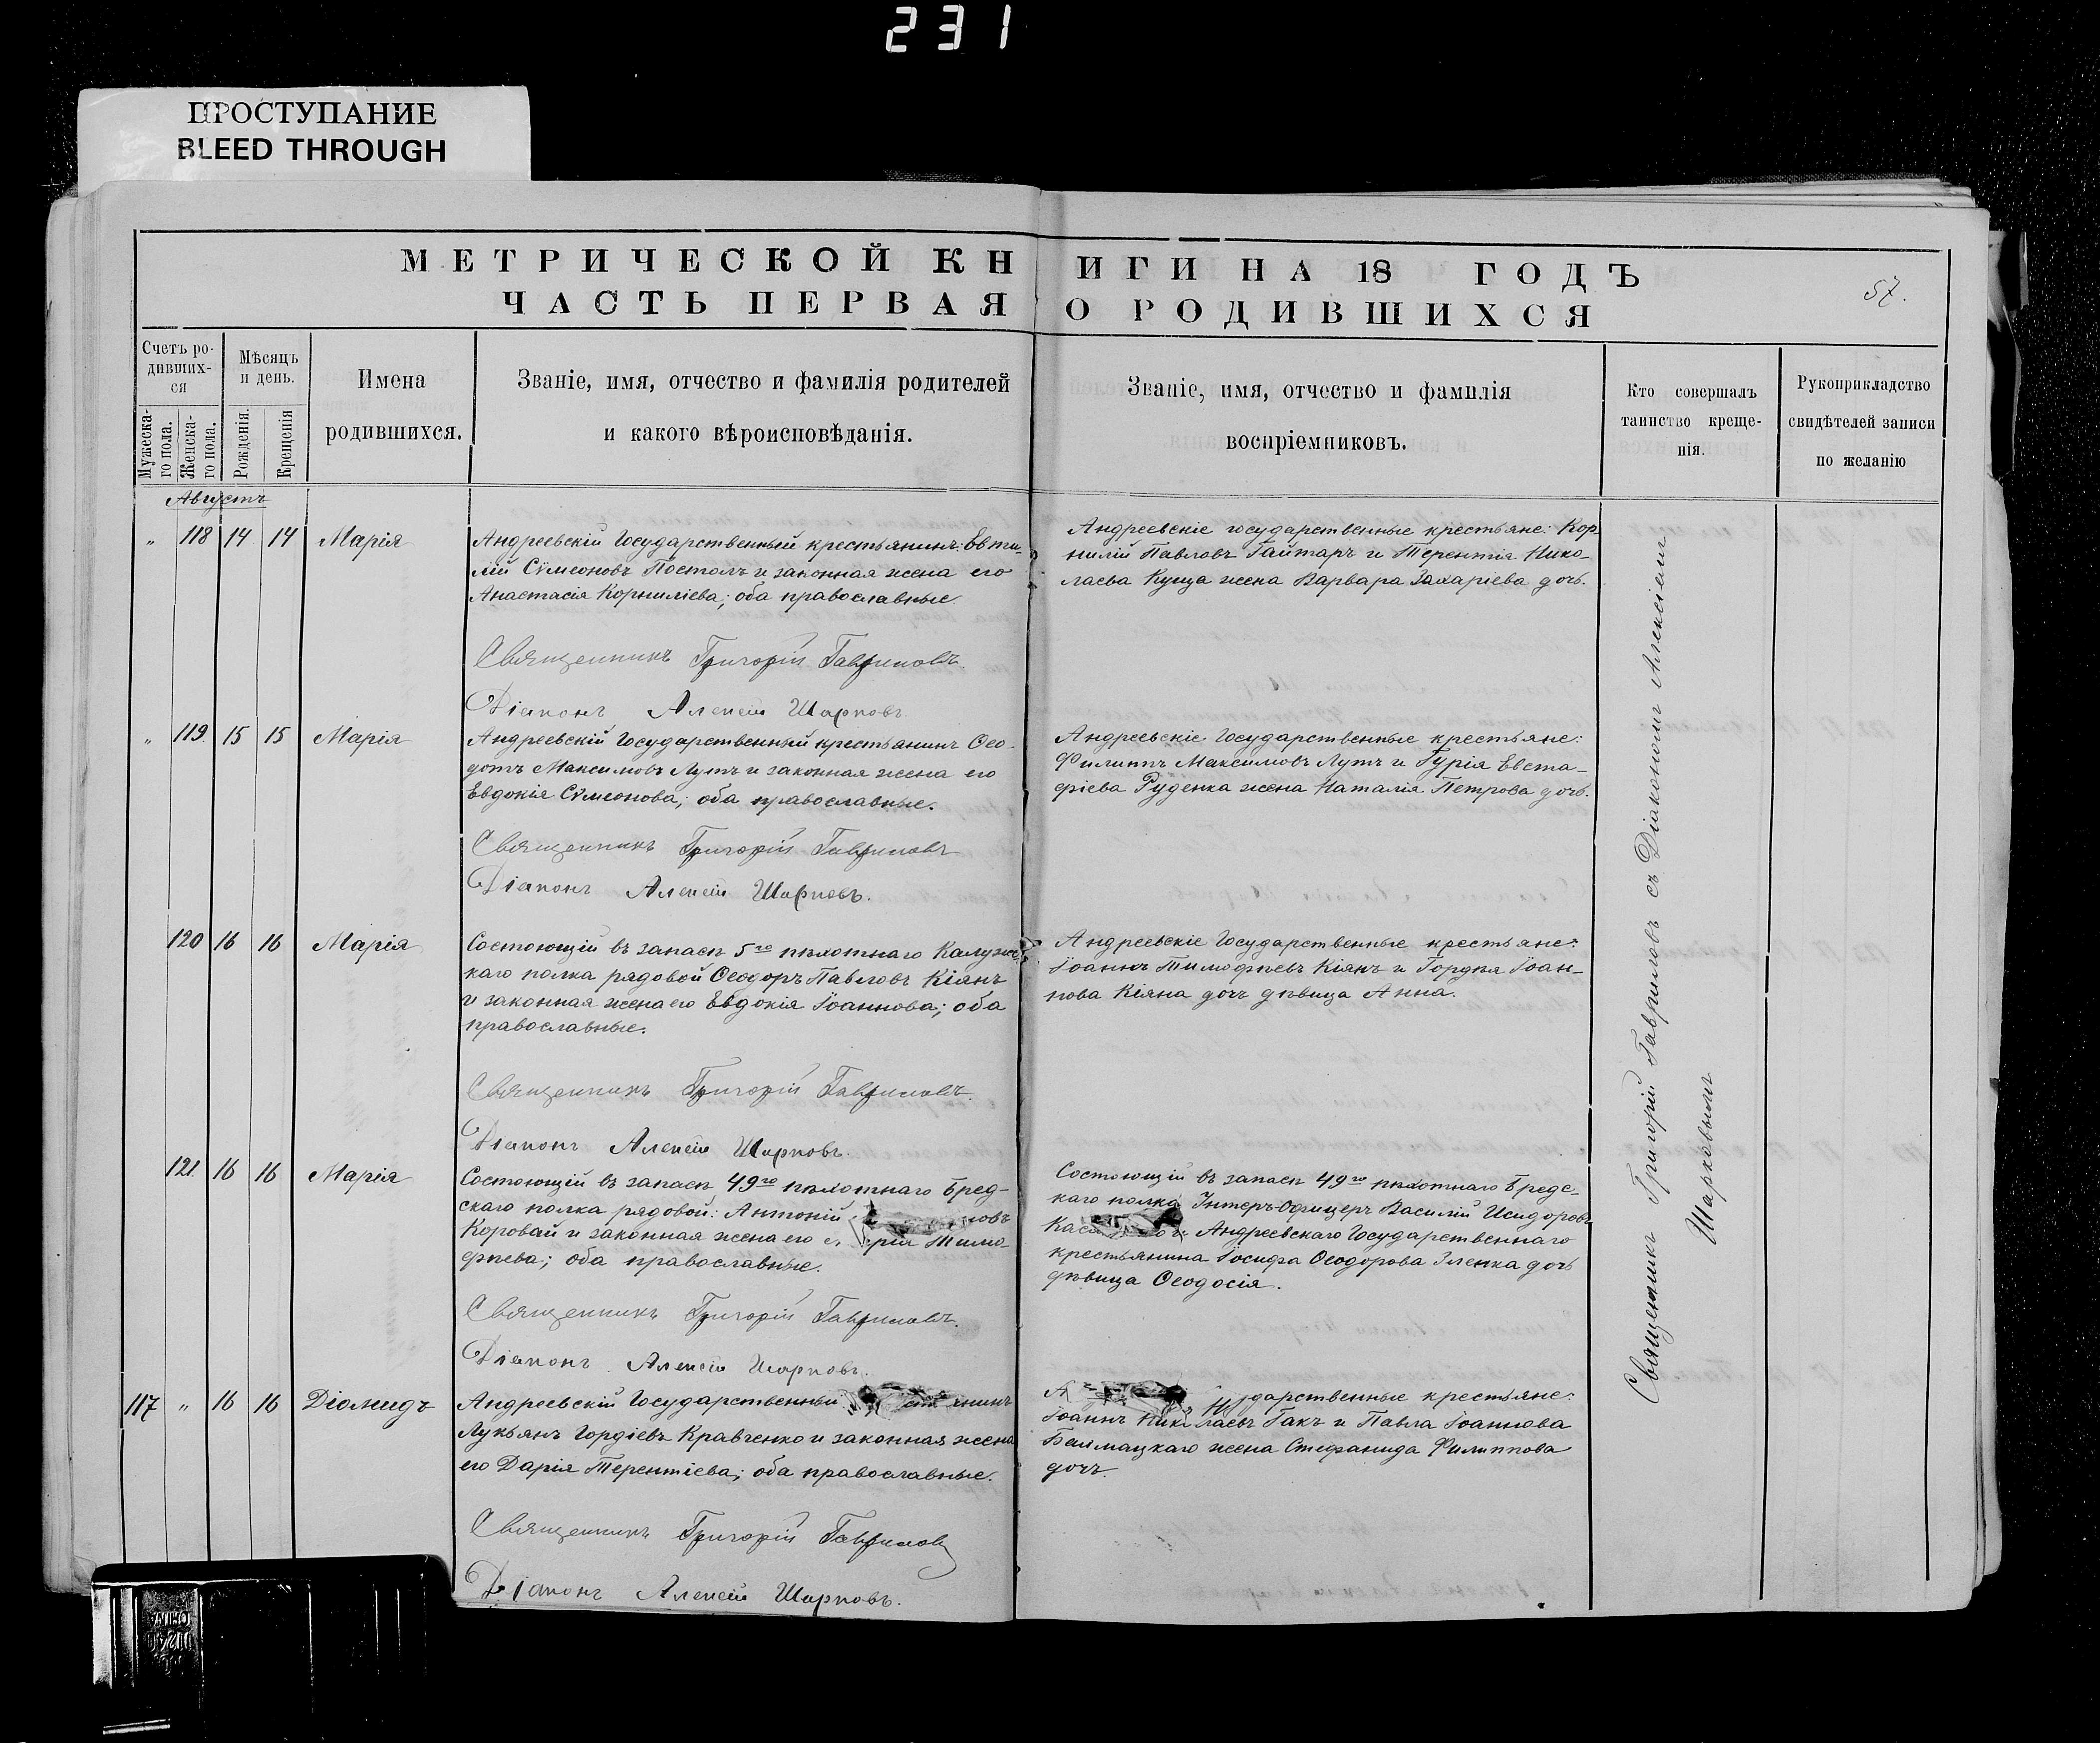 231
ПРОСТУПАНИЕ
BLEED THROUGH
МЕТРИЧЕСКОЙ КНИГИ НА 18 ГОДЪ
57.
ЧАСТЬ ПЕРВАЯ О РОДИВШИХСЯ
Счетъ ро-
дивших-
ся
Мужеска-
го пола.
Женска-
го пола.
Мѣсяцъ
и день.
Рожденія.
Крещенія
Имена
родившихся.
Званіе, имя, отчество и фамилія родителей
и какого вѣроисповѣданія.
Званіе, имя, отчество и фамилія
воспріемниковъ.
Кто совершалъ
таинство креще-
нія.
Рукоприкладство
свидѣтелей записи
по желанію
Августъ
„ 118 14 14 Марія
Андреевскій Государственный крестьянинъ: Евѳи-
мій Сѵмеоновъ Постолъ и законная жена его
Анастасія Корниліева; оба православные.
Священникъ Григорій Гавриловъ.
Діаконъ Алексій Шарковъ.
Андреевскіе государственные крестьяне: Кор-
нилій Павловъ Гайтаръ и Терентія Нико-
лаева Куща жена Варвара Захаріева дочь.
„ 119. 15 15 Марія
Андреевскій Государственный крестьянинъ Ѳео-
дотъ Максимовъ Лутъ и законная жена его
Евдокія Сѵмеонова; оба православные.
Священникъ Григорій Гавриловъ
Діаконъ Алексій Шарковъ.
Андреевскіе Государственные крестьяне:
Филиппъ Максимовъ Лутъ и Гурія Евста-
фіева Руденка жена Наталія Петрова дочь.
120 16 16 Марія
Состоющій въ запасѣ 5го пѣхотнаго Калужс-
каго полка рядовой Ѳеодоръ Павловъ Кіянъ
и законная жена его Евдокія Іоаннова; оба
православные.
Священникъ Григорій Гавриловъ.
Діаконъ Алексій Шарковъ.
Андреевскіе Государственные крестьяне:
Іоаннъ Тимофѣевъ Кіянъ и Гордѣя Іоан-
нова Кіяна дочь дѣвица Анна.
121. 16 16 Марія
Состоющій въ запасѣ 49го пѣхотнаго Бред-
скаго полка рядовой: Антоній
Коровай и законная жена его Тимо-
фѣева; оба православные.
Священникъ Григорій Гавриловъ.
Діаконъ Алексій Шарковъ.
Состоющій въ запасѣ 49го пѣхотнаго Бредс-
каго полка Унтеръ-Офицеръ Василій Исидоровъ
Андреевскаго Государственнаго
крестьянина Іосифа Ѳеодорова Зленка дочь
дѣвица Ѳеодосія.
117 „ 16 16 Діомидъ
Андреевскій Государственный
Лукьянъ Гордіевъ Кравченко и законная жена
его Дарія Терентіева; оба православные.
Священникъ Григорій Гавриловъ
Діаконъ Алексій Шарковъ.
крестьяне:
Іоаннъ Николаевъ Гакъ и Павла Іоаннова
жена Стефанида Филиппова
дочь.
Священникъ Григорій Гавриловъ съ Діакономъ Алексіемъ
Шарковымъ